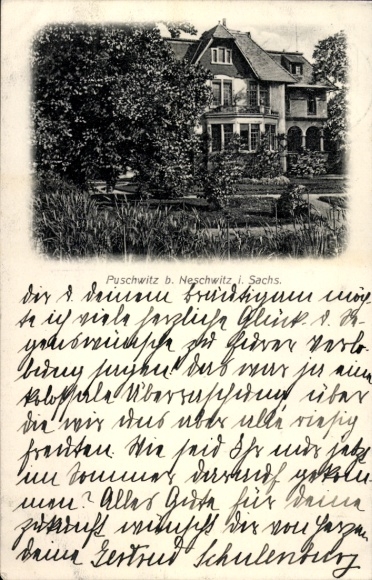 Puschwitz b. Neschwitz i. Sachs.
Dir u. deinem Bräutigam möch-
te ich viele herzliche Glück- u. Se-
genswünsche zu Eurer Verlo-
bung sagen! Das war ja eine
kolossale Überraschung über
die wir uns aber alle riesig
freuten. Wie seid Ihr nur jetzt
im Sommer darauf gekom-
men? Alles Gute für deine
Zukunft wünscht Dir von Herzen
deine Gertrud Schulenburg